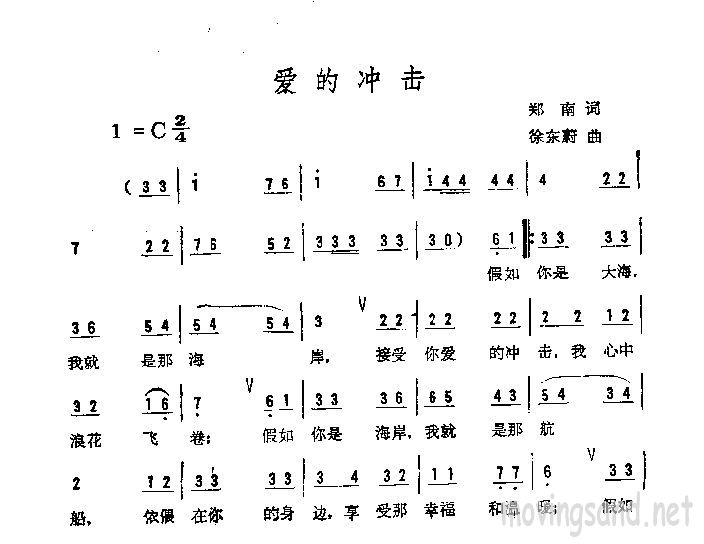 爱的冲击
郑南 词
1 = C 2/4
徐东蔚 曲
( 3 3 | i 7 6 | i 6 7 | i 4 4 4 4 | 4 2 2 |
7 2 2 | 7 6 5 2 | 3 3 3 3 3 3 | 3 0 ) 6 1 |: 3 3 3 3 |
假如 你是 大海,
3 6 5 4 | 5 4 5 4 | 3 V 2 2 | 2 2 2 2 | 2 2 1 2 |
我就 是那 海 岸, 接受 你爱 的冲 击,我 心中
3 2 1 6 | 7 V 6 1 | 3 3 3 6 | 6 5 4 3 | 5 4 3 4 |
浪花 飞 卷; 假如 你是 海岸,我就 是那 航
2 1 2 | 3 3 3 3 | 3 4 3 2 | 1 1 7 7 | 6 V 3 3 |
船, 依偎 在你 的身 边,享 受那 幸福 和温 暖; 假如
movingsand.net